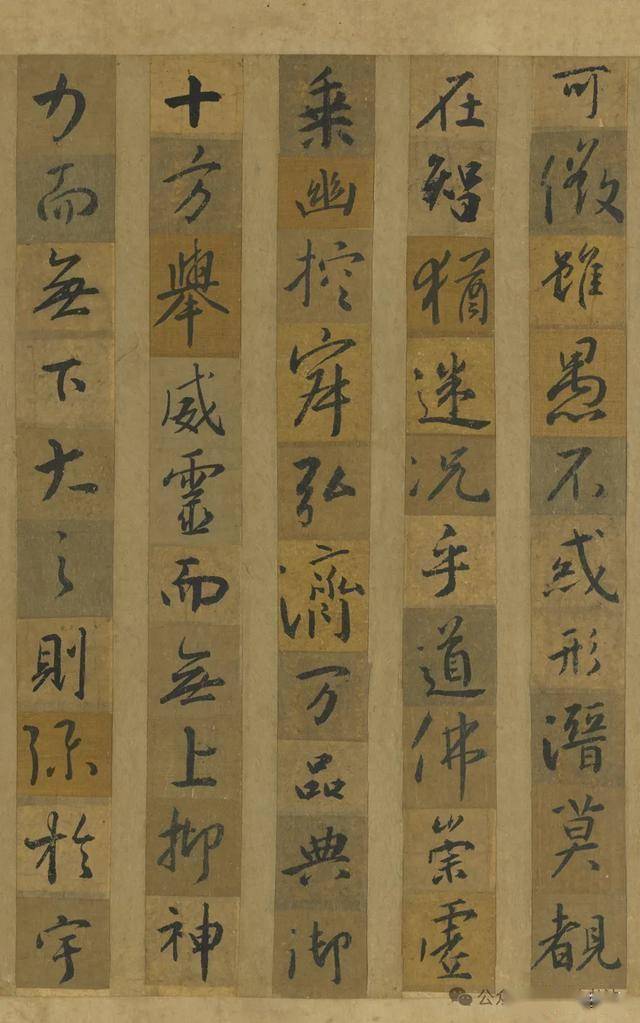 可徵雖愚不惑形潛莫覩
在智猶迷况乎道佛崇虛
乘幽控寂弘濟万品典御
十方舉威靈而無上抑神
力而無下大之則弥於宇